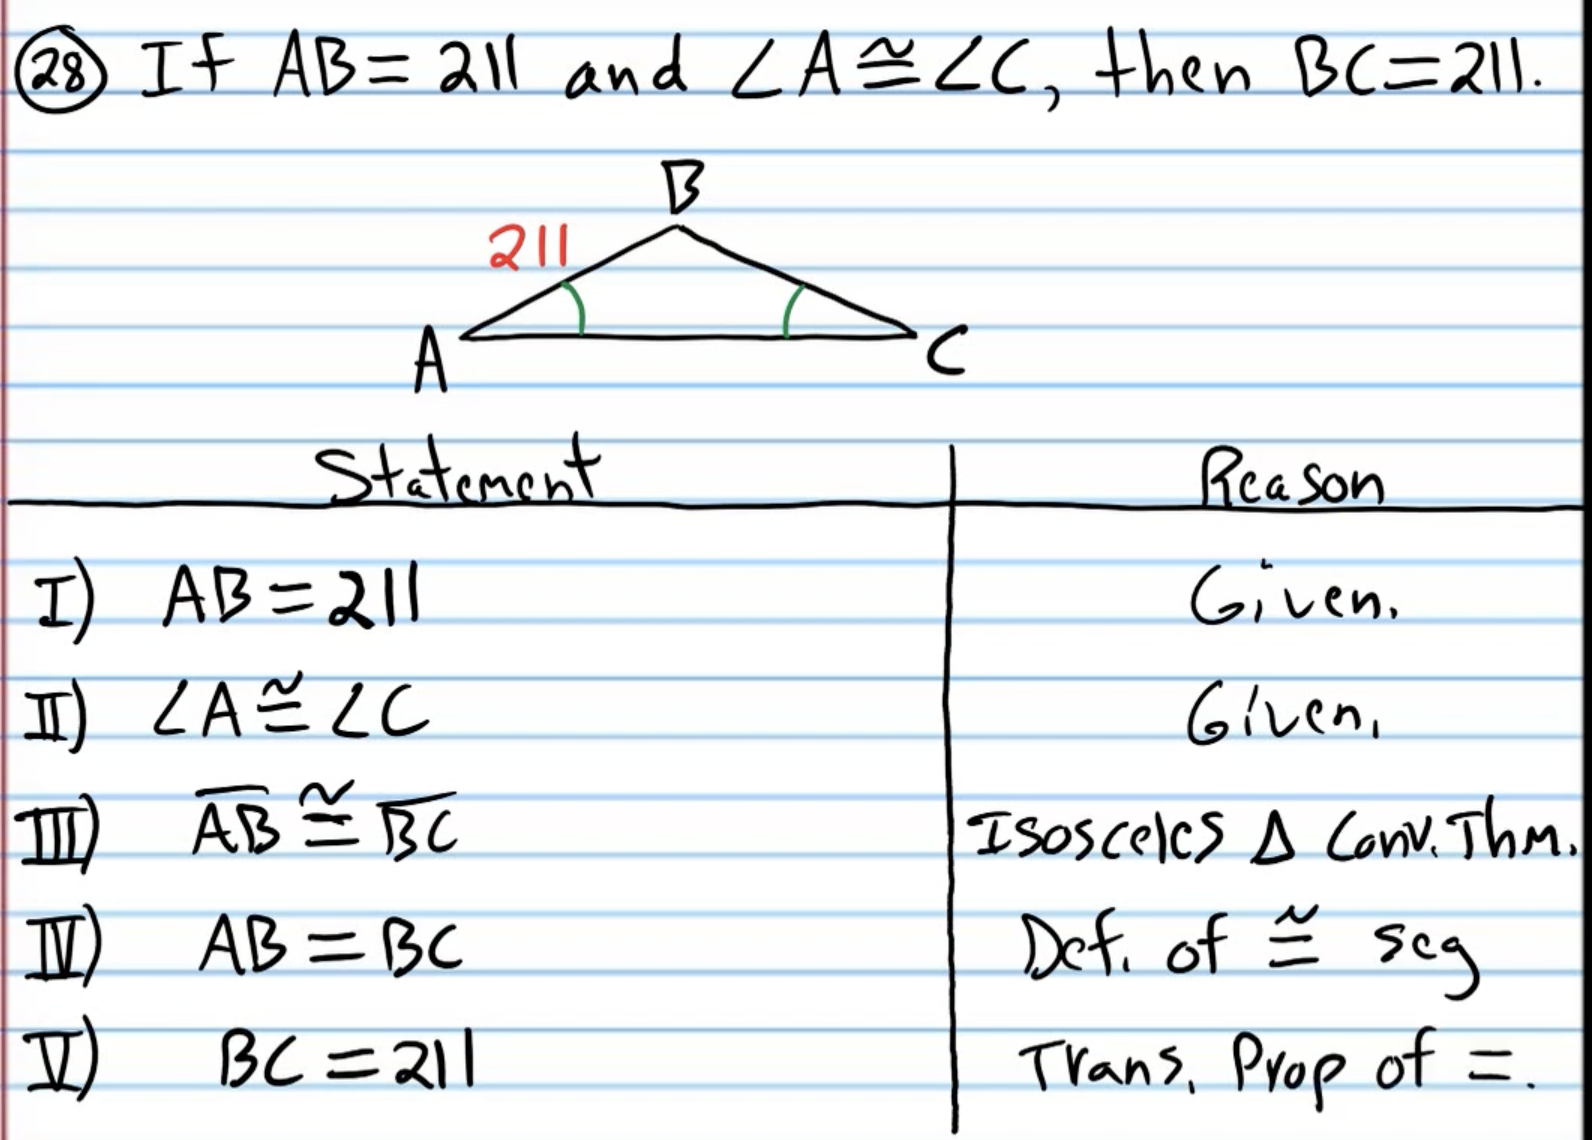 28 If AB = 211 and ∠A ≅ ∠C, then BC = 211.
B
211
A
C
Statement
Reason
I) AB = 211
Given.
II) ∠A ≅ ∠C
Given.
III) A̅B̅ ≅ B̅C̅
Isosceles Δ Conv. Thm.
IV) AB = BC
Def. of ≅ seg
V) BC = 211
Trans. Prop of =.